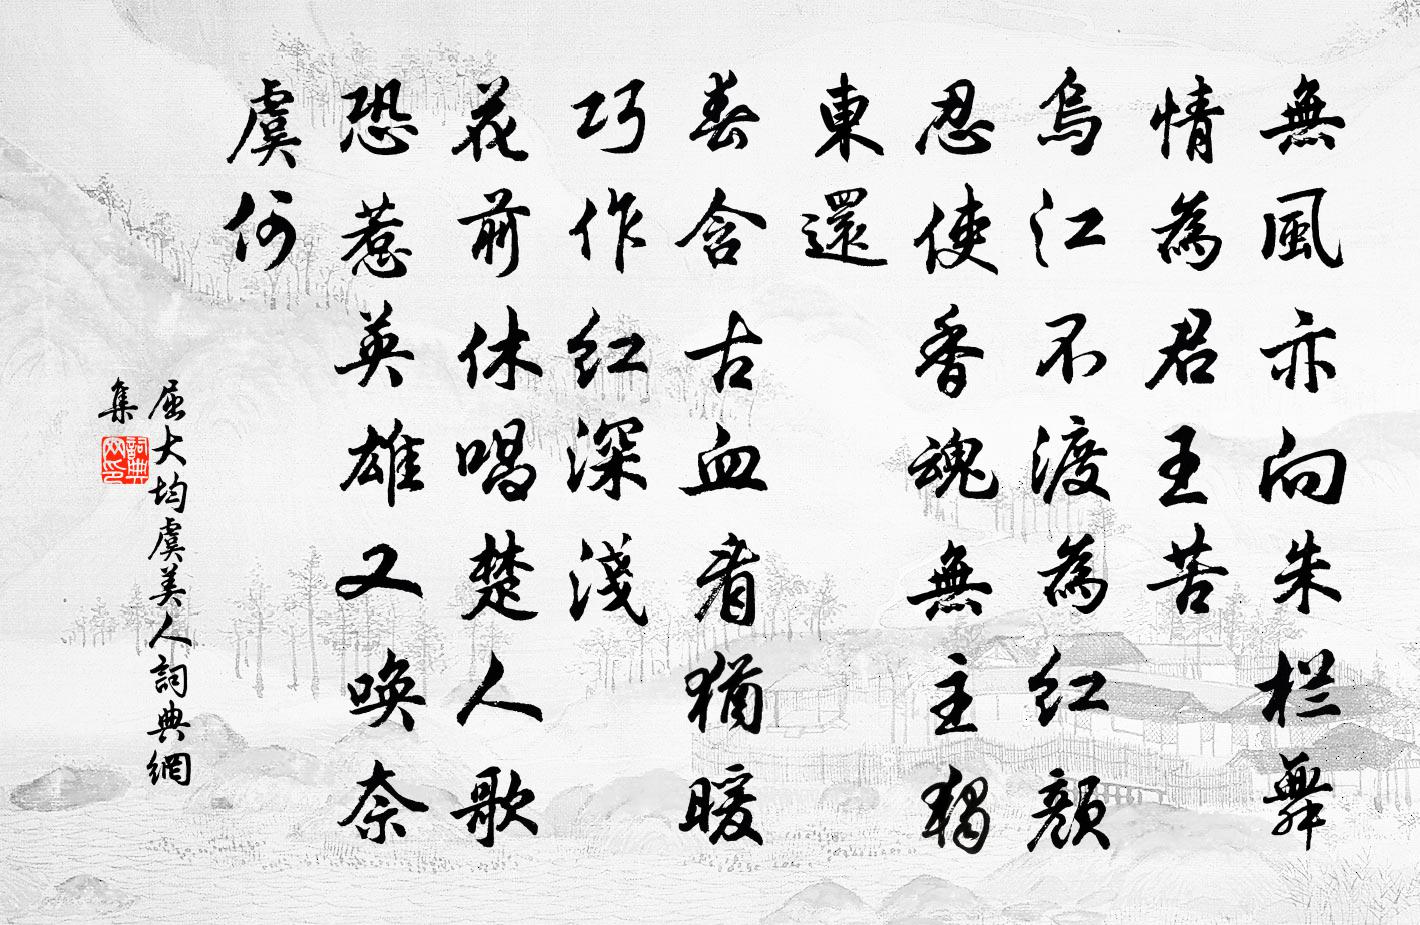 無風亦向朱栏舞
情為君王苦
烏江不渡為紅顏
忍使香魂無主獨
東還
春含古血看猶暖
巧作紅深淺
花前休唱楚人歌
恐惹英雄又喚奈
虞何
屈大均虞美人詞典網
集
詞典